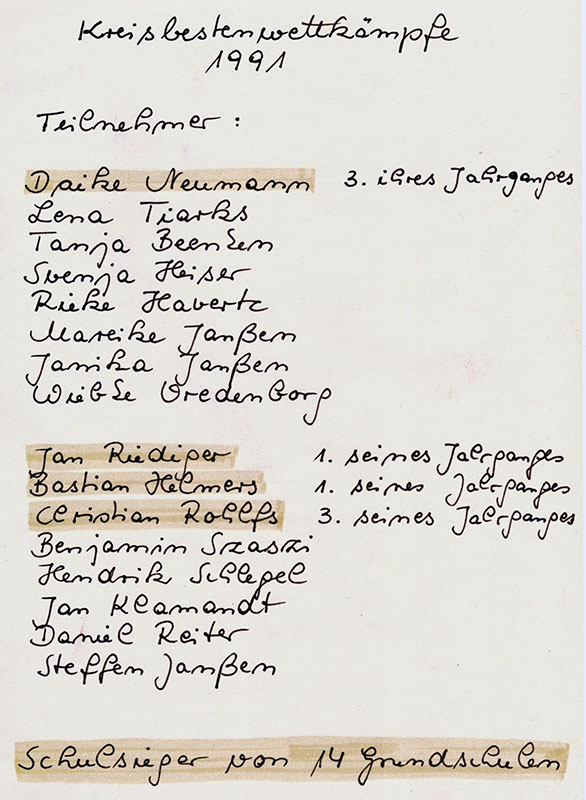 Kreisbestenwettkämpfe
1991
Teilnehmer :
Daike Neumann 3. ihres Jahrganges
Lena Tiarks
Tanja Beenken
Svenja Heiser
Rieke Havertz
Mareike Janßen
Janika Janßen
Wiebke Vredenborg
Jan Riediger 1. seines Jahrganges
Bastian Helmers 1. seines Jahrganges
Christian Rohlfs 3. seines Jahrganges
Benjamin Szaszi
Hendrik Schlegel
Jan Klamandt
Daniel Reiter
Steffen Janßen
Schulsieger von 14 Grundschulen